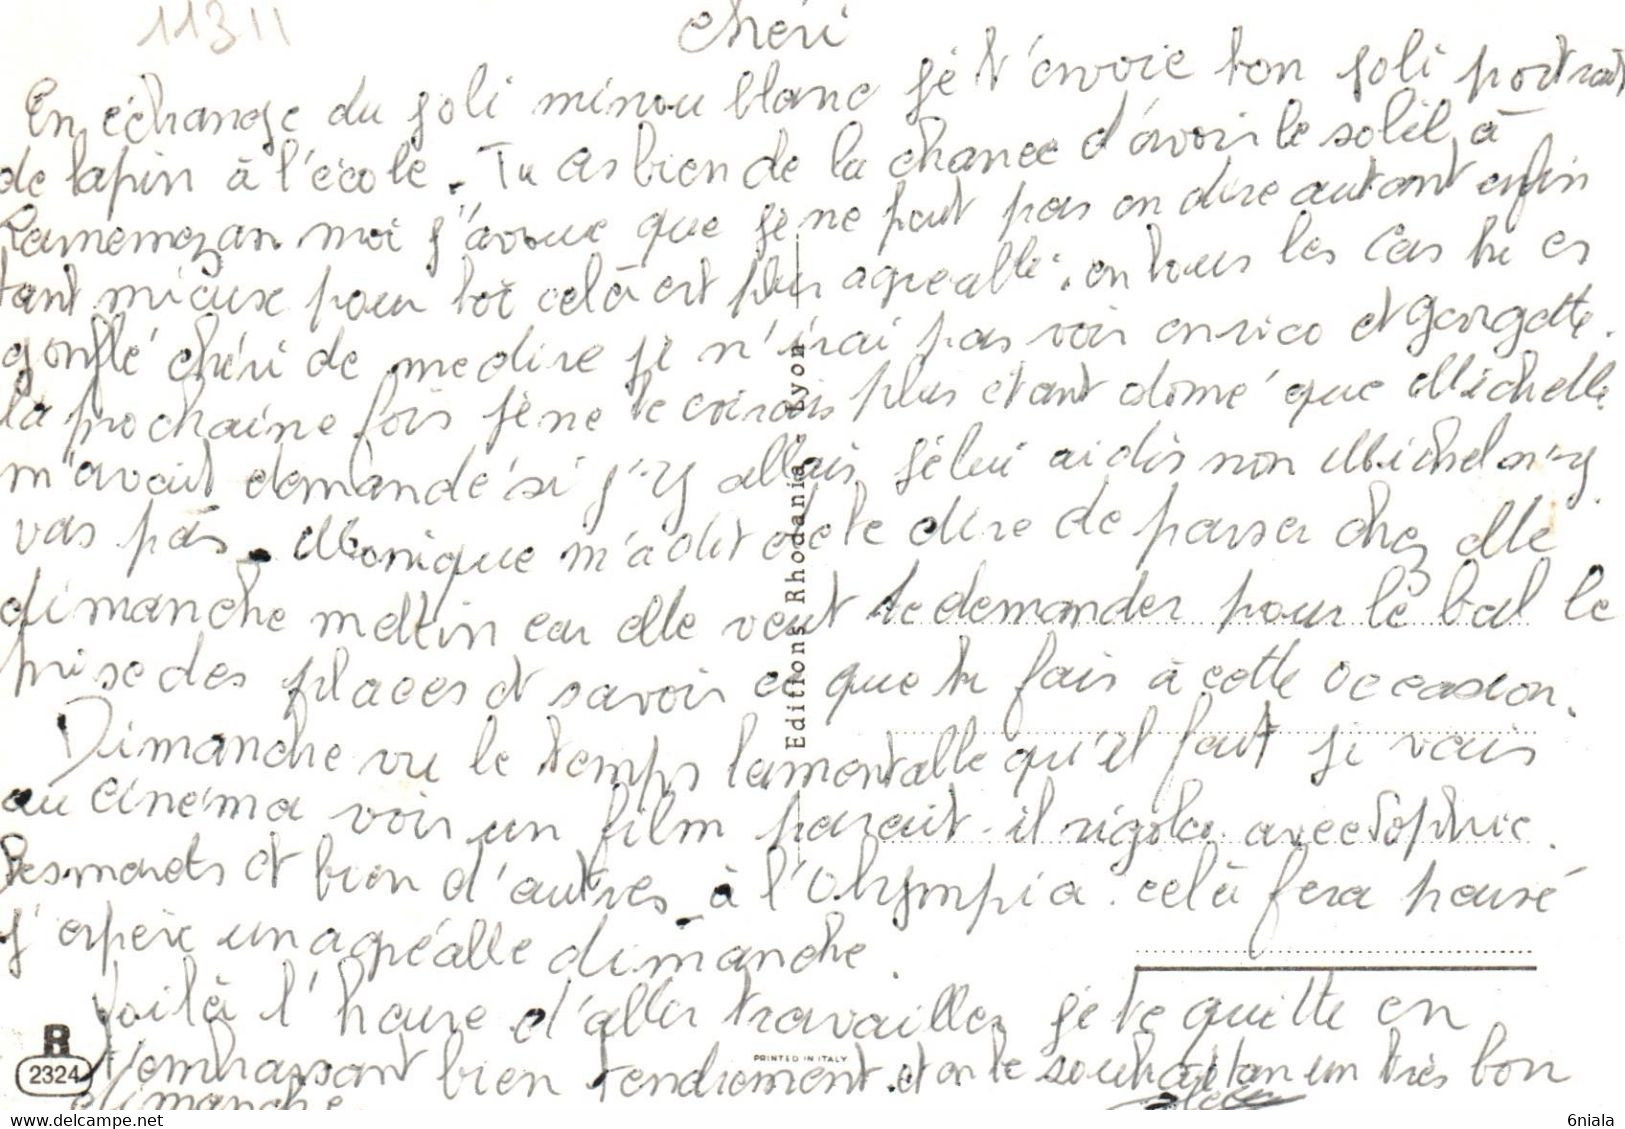 11311
Chéri
En échange du joli minou blanc je t'envoie ton joli portrait
de lapin à l'école. Tu as bien de la chance d'avoir le soleil à
moi j'avoue que je ne peut pas en dire autant enfin
tant mieux pour toi celà est plus agreable. en tous les cas tu es
gonflé chéri de me dire je n'irai pas voir enrico et Georgette.
la prochaine fois je ne te croirais plus etant donné que Michelle
m'avait demandé si j'y allais je lui ai dis non Michel n'y
vas pas. Monique m'a dit de te dire de passer chez elle
dimanche mattin car elle veut te demander pour le bal le
prise des places et savoir ce que tu fais à cette occasion.
Dimanche vu le temps lamentalle qu'il fait je vais
au cinéma voir un film parait-il rigolo avec Sophie
Desmarets et bien d'autres à l'Olympia. celà fera passé
j'espère un agréalle dimanche.
Voilà l'heure d'aller travailler je te quitte en
t'embrassant bien tendrement. et en te souhaitan un très bon
dimanche
Editions Rhodania - Lyon
R
2324
PRINTED IN ITALY
www.delcampe.net
6niala